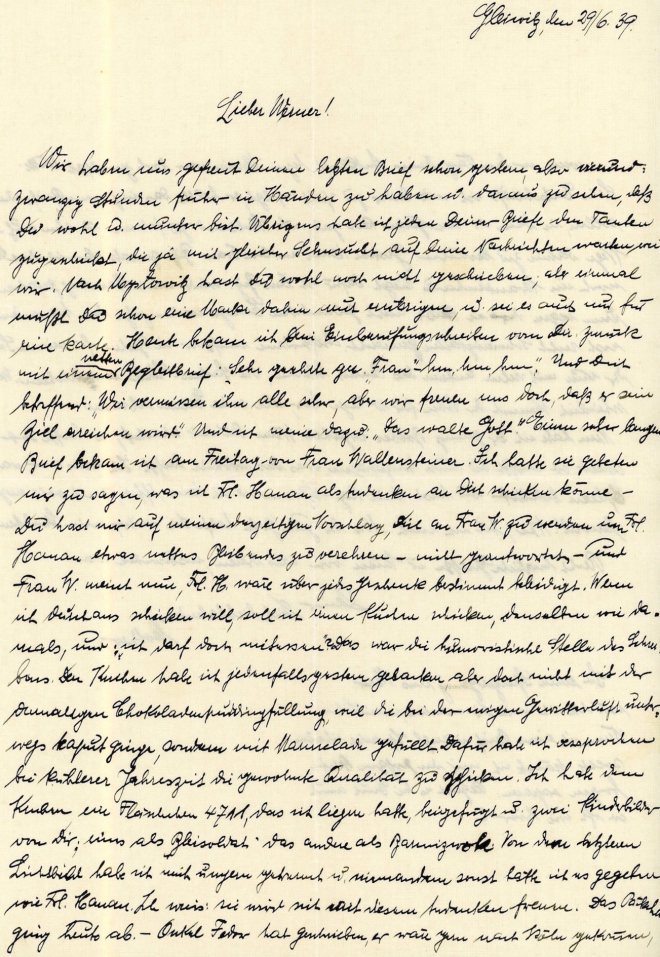 Gleiwitz, den 29/6. 39.
Lieber Werner!
Wir haben uns gefreut Deinen letzten Brief schon gestern, also vierund-
zwanzig Stunden früher in Händen zu haben u. daraus zu sehen, daß
Du wohl u. munter bist. Übrigens habe ich jeden Deiner Briefe den Tanten
zugeschickt, die ja mit gleicher Sehnsucht auf Deine Nachrichten warten, wie
wir. Nach Myslowitz hast Du wohl noch nicht geschrieben; aber einmal
mußt Du schon eine Marke dahin mit u. sei es auch nur für
eine Karte. Heute bekam ich Einberufungsschreiben vom zurück
mit einem netten Begleitbrief: Sehr geehrte "Frau"- hm, hm, hm". Und Dich
betreffend: "Wir vermissen ihn alle sehr, aber wir freuen uns doch, daß er sein
Ziel erreichen wird." Und ich meine dazu: "das walte Gott" Einen sehr langen
Brief bekam ich am Freitag von Frau Wallensteiner. Ich hatte sie gebeten
mir zu sagen, was ich Frl. Hanau als Andenken an Dich schicken könne –
Du hast mir auf meinen derzeitigen Vorschlag, an Frau W. zu wenden um Frl.
Hanau etwas nettes Bleibendes zu verehren – nicht geantwortet – und
Frau W. meint nun, Frl. H. wäre über jedes Geschenk bestimmt beleidigt. Wenn
ich durchaus schicken will, soll ich einen Kuchen schicken, denselben wie da-
mals, und: "ich darf doch mitessen?" das war die humoristische Stelle des Schrei-
bens. Den Kuchen habe ich jedenfalls gestern gebacken aber doch nicht mit der
damaligen Chokoladenpuddingfüllung, weil die bei der Gewitterluft unter-
wegs kaput ginge, sondern mit Marmelade gefüllt. Dafür habe ich versprochen
bei kühlerer Jahreszeit die gewohnte Qualität zu schicken. Ich habe dem
Kuchen ein Fläschchen 4711, das ich liegen hatte, beigefügt u. zwei Kinderbilder
von Dir; eins als Bleisoldat das andere als Von dem letzteren
Lichtbild habe ich mich ungern getrennt u. niemandem sonst hätte ich es gegeben
wie Frl. Hanau. Ich weiss: sie wird sich mit diesem Andenken freuen. Das
ging heute ab. – Onkel Fedor hat geschrieben, er wäre gern nach Köln gekommen,